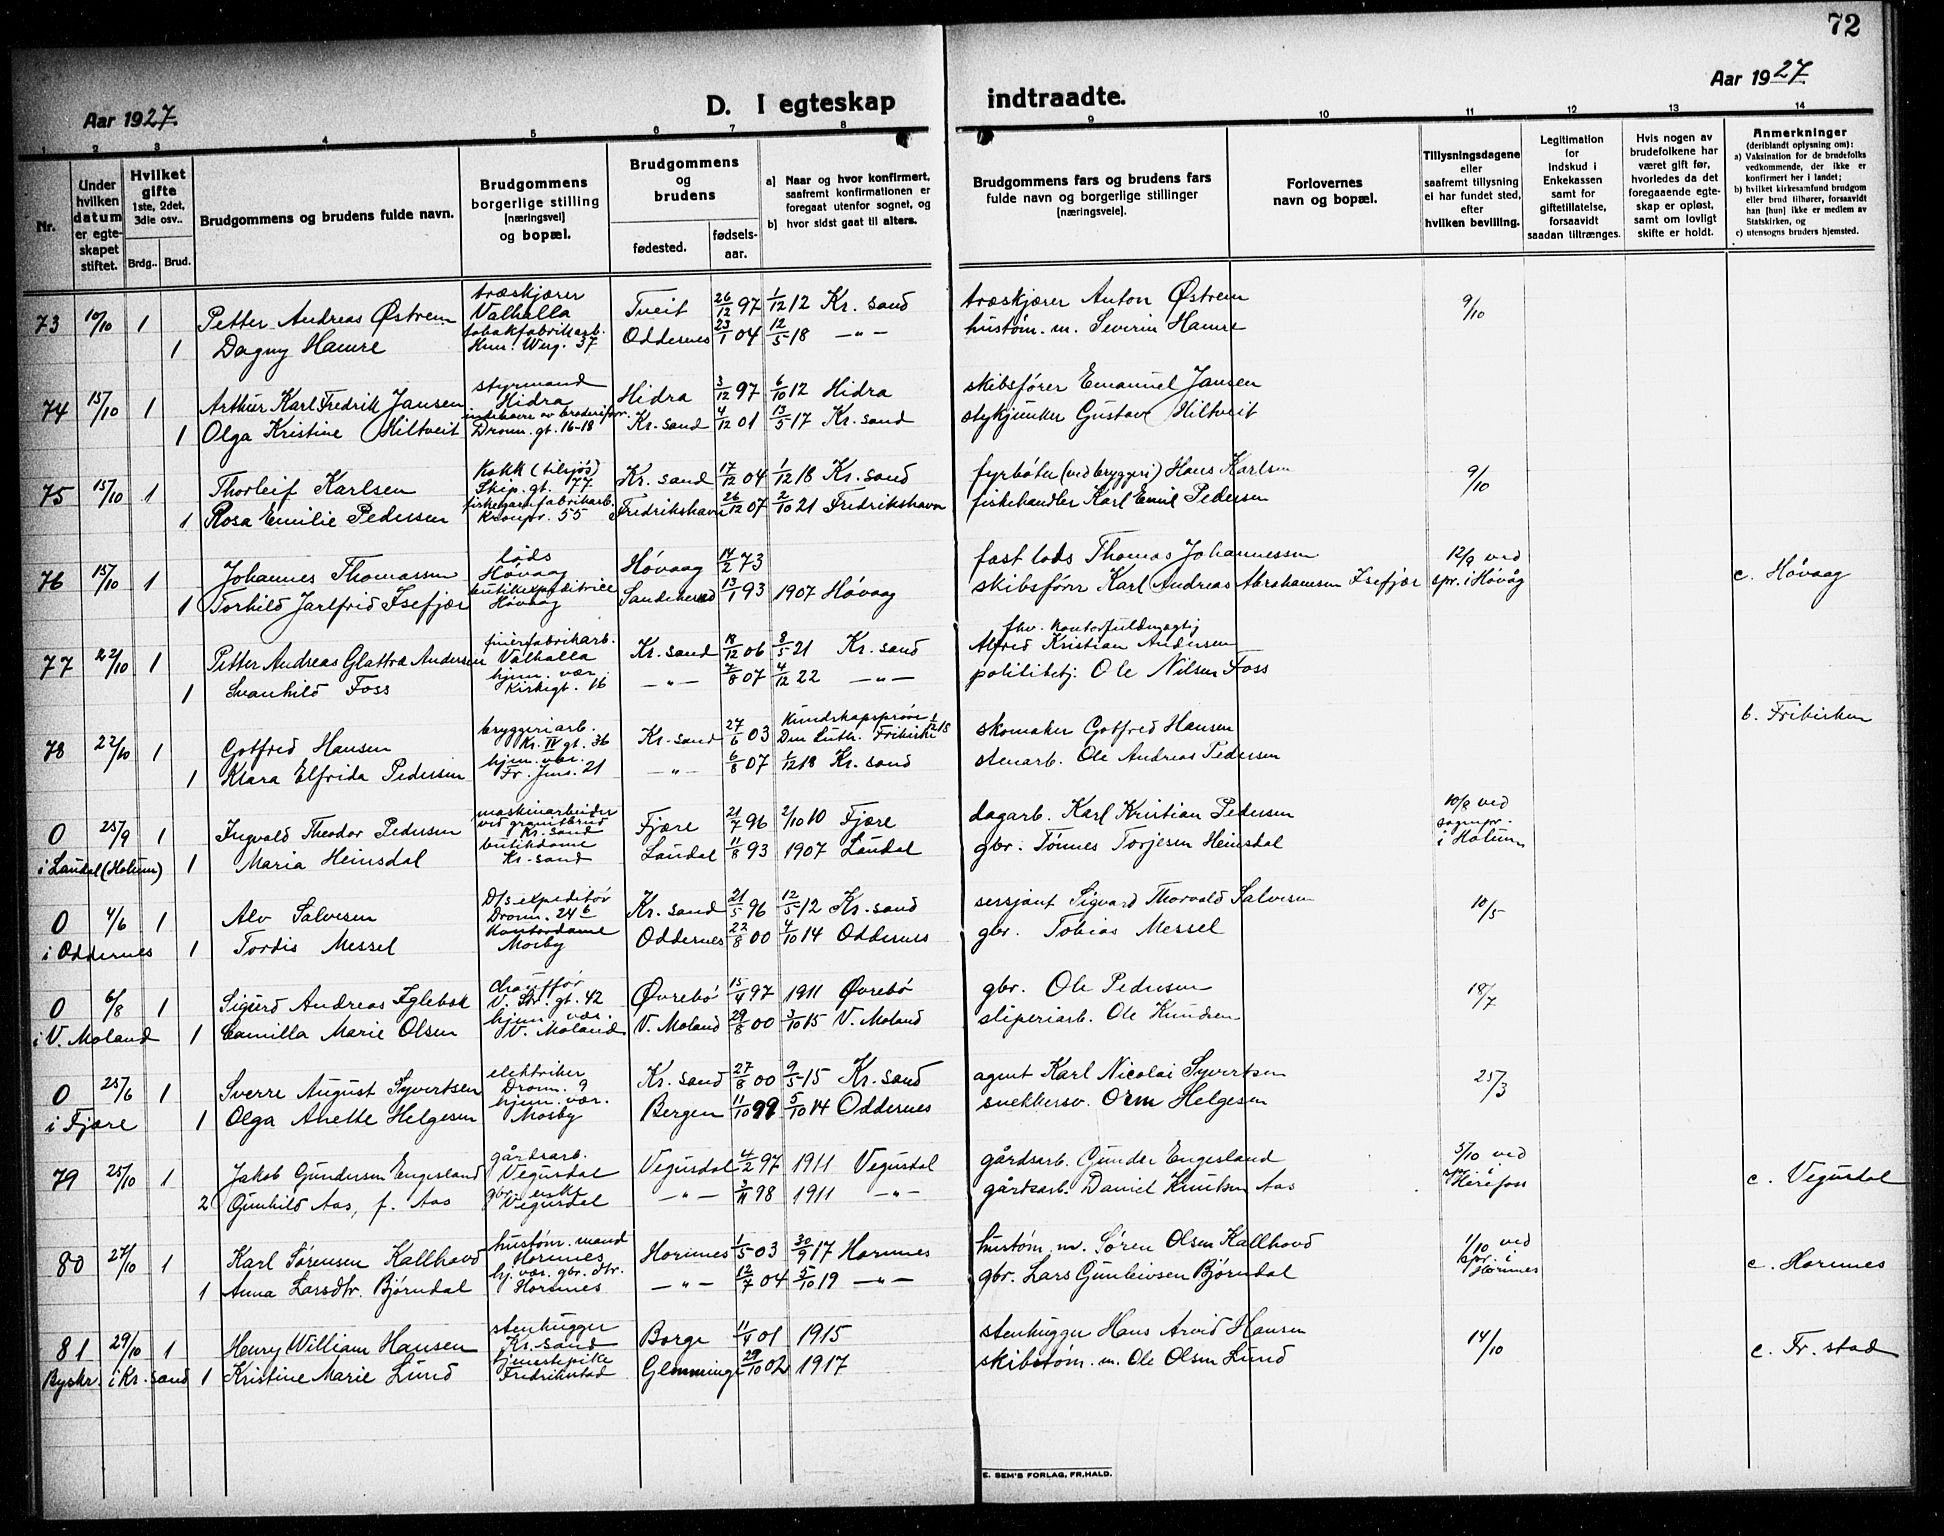 72
Aar 1927.
D. I egteskap indtraadte.
Aar 1927
1 2 3 4 5 6 7 8 9 10 11 12 13 14
Nr.
Under hvilken datum er egteskapet stiftet.
Hvilket gifte 1ste, 2det, 3die osv..
Brdg.. Brud.
Brudgommens og brudens fulde navn.
Brudgommens borgerlige stilling [næringsvei] og bopæl.
Brudgommens og brudens
fødested. fødselsaar.
a] Naar og hvor konfirmert, saafremt konfirmationen er foregaat utenfor sognet, og
b] hvor sidst gaat til alters.
Brudgommens fars og brudens fars fulde navn og borgerlige stillinger [næringsveie].
Forlovernes navn og bopæl.
Tillysningsdagene eller saafremt tillysning ei har fundet sted, efter hvilken bevilling.
Legitimation for indskud i Enkekassen samt for giftetillatelse, forsaavidt saadan tiltrænges.
Hvis nogen av brudefolkene har været gift før, hvorledes da det foregaaende egteskap er opløst, samt om lovligt skifte er holdt.
Anmerkninger (deriblandt oplysning om):
a) Vaksination for de brudefolks vedkommende, der ikke er konfirmert her i landet;
b) hvilket kirkesamfund brudgom eller brud tilhører, forsaavidt han [hun] ikke er medlem av Statskirken, og
c) utensogns bruders hjemsted.
73 10/10 1 Petter Andreas Østrem træskjærer Valhalla Tveit 26/12 97 1/12 12 Kr. sand træskjærer Anton Østrem 9/10
1 Dagny Hamre tobakfabrikarb. Knr. Werg. 37 Oddernes 23/1 04 12/5 18 —"— hustøm. m. Severin Hamre
74 15/10 1 Arthur Karl Fredrik Jansen styrmand Hidra Hidra 3/12 97 6/10 12 Hidra skibsfører Emanuel Jansen
1 Olga Kristine Hiltveit indehaver av broderiforr. Dronn. gt. 16-18 Kr. sand 4/12 01 13/5 17 Kr. sand stykjunker Gustav Hiltveit
75 15/10 1 Thorleif Karlsen Kokk (tilsjøs) Skip. gt. 77 Kr. sand 17/12 04 1/12 18 Kr. sand fyrbøter (ved bryggeri) Hans Karlsen 9/10
1 Rosa Emilie Pedersen fiskegarnfabrikarb. Kronpr. 55 Fredrikshavn 26/12 07 2/10 21 Fredrikshavn fiskehandler Karl Emil Pedersen
76 15/10 1 Johannes Thomassen lods Høvaag Høvaag 14/2 73 fast lods Thomas Johannessen 12/9 ved spr. i Høvåg c. Høvaag
1 Torhild Jarlfrid Isefjær butikexpeditrice Høvaag Sandeherred 13/1 93 1907 Høvaag skibsfører Karl Andreas Abrahamsen Isefjær
77 22/10 1 Petter Andreas Glattre Andersen finerfabrikarb. Valhalla Kr. sand 18/12 06 8/5 21 Kr. sand fhv. kontorfuldmægtig Alfred Kristian Andersen
1 Svanhild Foss hjem. vær. Kirkegt. 16 —"— 7/8 07 4/12 22 —"— politibtj. Ole Nilsen Foss
78 22/10 1 Gotfred Hansen bryggeriarb. Kr. IV gt. 36 Kr. sand 27/6 03 Kundskapsprøve Den Luth. Frikirke 1/12 18 skomaker Gotfred Hansen b. Frikirken
1 Klara Elfrida Pedersen hjem. vær. Fr. Jns. 21 —"— 6/8 07 1/12 18 Kr. sand stenarb. Ole Andreas Pedersen
0 25/9 1 Ingvald Theodor Pedersen maskinarbeider ved granitbrud Kr. sand Fjære 21/7 96 2/10 10 Fjære dagarb. Karl Kristian Pedersen 10/8 ved sognepr. i Holum
i Laudal (Holum) 1 Maria Heinsdal butikdame Kr. sand Laudal 11/8 93 1907 Laudal gbr. Tønnes Torjesen Heinsdal
0 4/6 1 Alv Salvesen D/s expeditør Dronn. 24 b Kr. sand 21/5 96 12/5 12 Kr. sand sersjant Sigvard Thorvald Salvesen 10/5
i Oddernes 1 Tordis Messel kontordame Mosby Oddernes 22/8 00 4/10 14 Oddernes gbr. Tobias Messel
0 6/8 1 Sigurd Andreas Iglebæk chauffør V. Str. gt. 42 Øvrebø 15/4 97 1911 Øvrebø gbr. Ole Pedersen 18/7
i V. Moland 1 Camilla Marie Olsen hjem. vær. V. Moland V. Moland 29/8 00 3/10 15 V. Moland sliperiarb. Ole Knudsen
0 25/6 1 Sverre August Syvertsen elektriker Dronn. 9 Kr. sand 27/8 00 9/5 15 Kr. sand agent Karl Nicolai Syvertsen 25/3
i Fjære 1 Olga Anette Helgesen hjem. vær. Mosby Bergen 11/10 99 5/10 14 Oddernes snekkersv. Orm Helgesen
79 25/10 1 Jakob Gundersen Engesland gårdsarb. Vegusdal Vegusdal 4/2 97 1911 Vegusdal gårdsarb. Gunder Engesland 5/10 ved spr. i Herefoss c. Vegusdal
2 Gunhild Aas, f. Aas gbr. enke Vegusdal —"— 3/11 98 1911 —"— gårdsarb. Daniel Knutsen Aas
80 27/10 1 Karl Sørensen Kallhovd hustøm. mand Hornnes Hornnes 1/5 03 30/9 17 Hornnes hustøm. m. Søren Olsen Kallhovd 1/10 ved spr. i Hornnes c. Hornnes
1 Anna Larsdtr. Bjørndal hj. vær. gbr. dtr. Hornnes —"— 12/7 04 5/10 19 —"— gbr. Lars Gunleivsen Bjørndal
81 29/10 1 Henry William Hansen stenhugger Kr. sand Borge 11/4 01 1915 stenhugger Hans Arvid Hansen 14/10 c. Fr. stad
Byskr. i Kr. sand 1 Kristine Marie Lund tjenestepike Fredrikstad Glemminge 29/10 02 1917 skibstøm. m. Ole Olsen Lund
E. SEM'S FORLAG, FR.HALD.